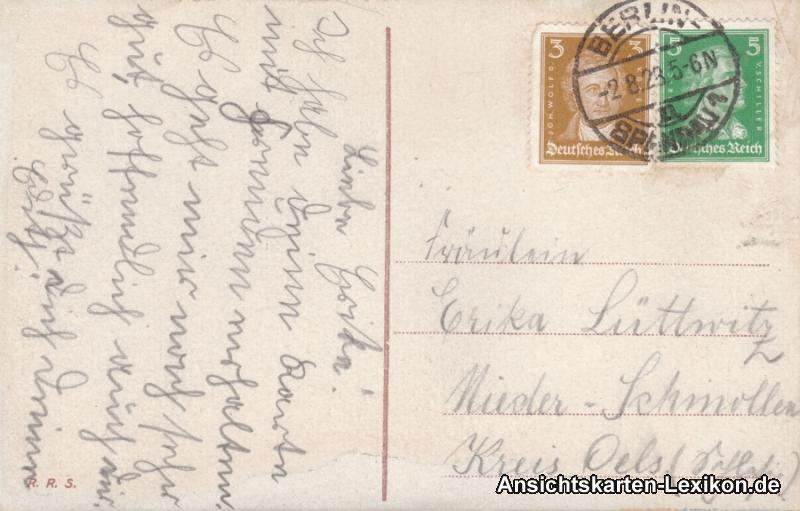 Liebe Erika!
Ich habe deine Karte
mit Freuden erhalten.
Es geht mir noch sehr
gut, hoffendlich auch dir.
Es grüßt dich deine
3
3
JOH. WOLFG.
Deutsches Reich
5
5
V. SCHILLER
Deutsches Reich
BERLIN-
-2.8.28.5-6N
SPANDAU 1
Fräulein
Erika Lüttwitz
Nieder-Schmollen
Kreis Oels (Schles.)
R. R. S.
Ansichtskarten-Lexikon.de